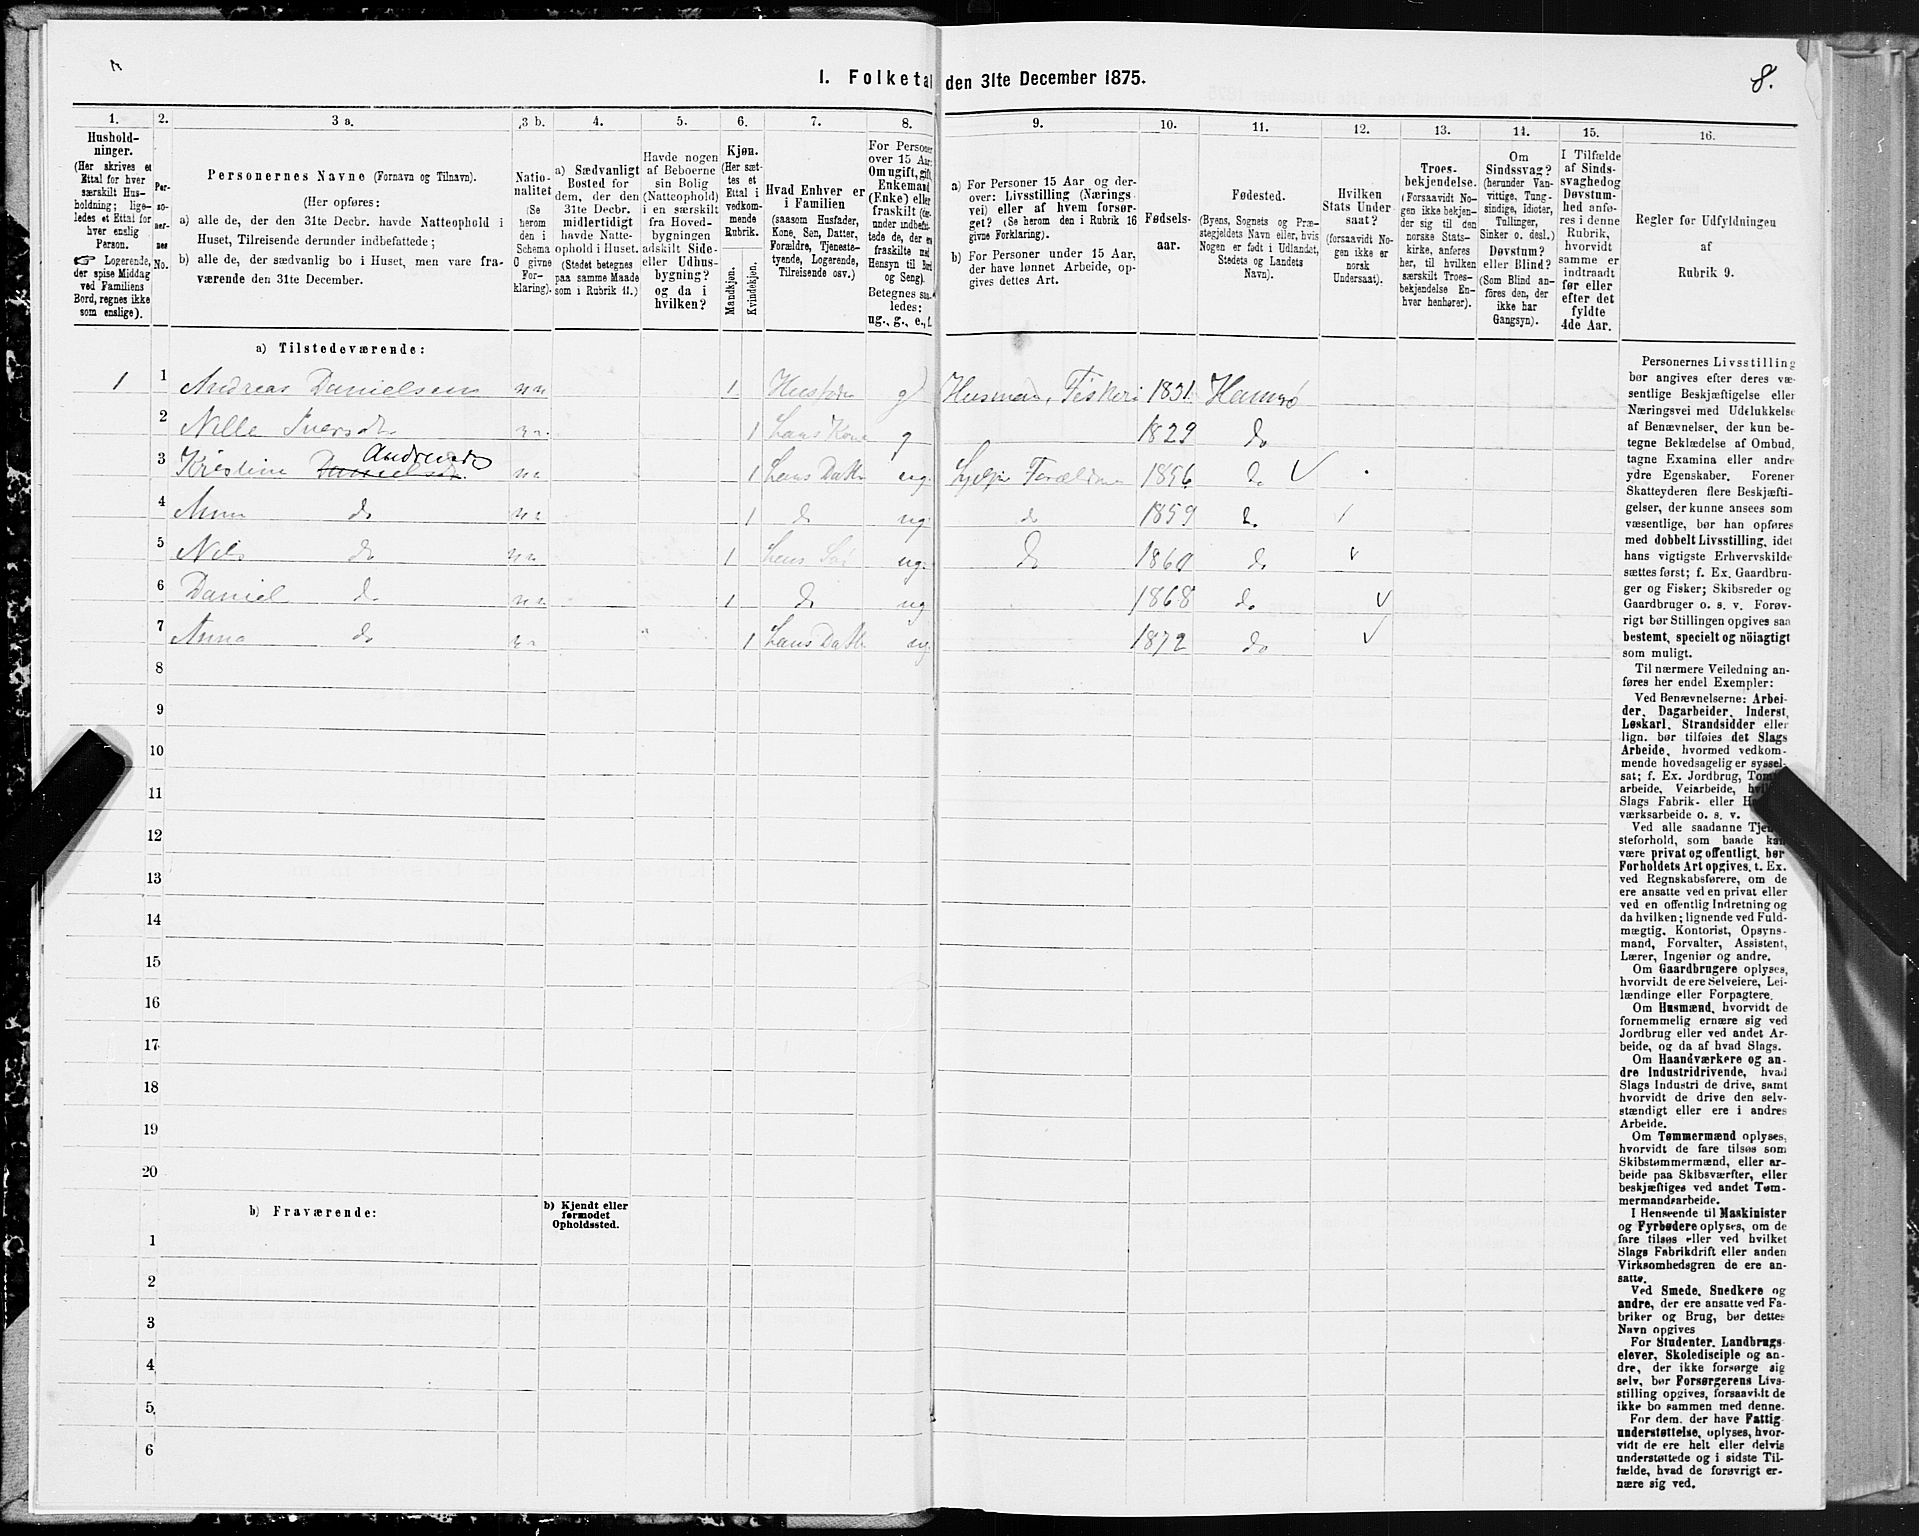 8.
I. Folketal den 31te December 1875.
1. 2. 3 a. 3 b. 4. 5. 6. 7. 8. 9. 10. 11. 12. 13. 14. 15. 16.
Hushold-
ninger.
(Her skrives et
Ettal for hver
særskilt Hus-
holdning; lige-
ledes et Ettal for
hver enslig
Person.
☞ Logerende,
der spise Middag
ved Familiens
Bord, regnes ikke
som enslige).
Per-
so-
ner-
nes
No.
Personernes Navne (Fornavn og Tilnavn).
(Her opføres:
a) alle de, der den 31te Decbr. havde Natteophold i
Huset, Tilreisende derunder indbefattede;
b) alle de, der sædvanlig bo i Huset, men vare fra-
værende den 31te December.
Natio-
nalitet
(Se
herom
den i
Schema
O givne
For-
klaring).
a) Sædvanligt
Bosted for
dem, der den
31te Decbr.
midlertidigt
havde Natte-
ophold i Huset.
(Stedet betegnes
paa samme Maade
som i Rubrik 11.)
Havde nogen
af Beboerne
sin Bolig
(Natteophold)
i en særskilt
fra Hoved-
bygningen
adskilt Side-
eller Udhus-
bygning?
og da i
hvilken?
Kjøn.
(Her sæt-
tes et
Ettal i
vedkom-
mende
Rubrik.
Mandkjøn.
Kvindekjøn.
Hvad Enhver er
i Familien
(saasom Husfader,
Kone, Søn, Datter,
Forældre, Tjeneste-
tyende, Logerende,
Tilreisende osv.)
For Personer
over 15 Aar:
Om ugift, gift,
Enkemand
(Enke) eller
fraskilt (der-
under indbefat-
tede de, der ere
fraskilte med
Hensyn til Bord
og Seng).
Betegnes saa-
ledes:
ug., g., e., f.
a) For Personer 15 Aar og der-
over: Livsstilling (Nærings-
vei) eller af hvem forsør-
get? (Se herom den i Rubrik 16
givne Forklaring).
b) For Personer under 15 Aar,
der have lønnet Arbeide, op-
gives dettes Art.
Fødsels-
aar.
Fødested.
(Byens, Sognets og Præ-
stegjeldets Navn eller, hvis
Nogen er født i Udlandet,
Stedets og Landets
Navn).
Hvilken
Stats Under-
saat?
(forsaavidt No-
gen ikke er
norsk
Undersaat).
Troes-
bekjendelse.
(Forsaavidt No-
gen ikke bekjen-
der sig til den
norske Stats-
kirke, anføres
her, til hvilken
særskilt Troes-
bekjendelse En-
hver henhører).
Om
Sindssvag?
(herunder Van-
vittige, Tung-
sindige, Idioter,
Tullinger,
Sinker o. desl.)
Døvstum?
eller Blind?
(Som Blind an-
føres den, der
ikke har
Gangsyn).
I Tilfælde
af Sinds-
svaghed og
Døvstum-
hed anfø-
res i denne
Rubrik,
hvorvidt
samme er
indtraadt
før eller
efter det
fyldte
4de Aar.
Regler for Udfyldningen
af
Rubrik 9.
a) Tilstedeværende:
1 1 Andreas Danielsen nn 1 Husfader g Husmand, Fisker 1831 Hamrø
2 Nille Iversdtr nn 1 Hans Kone g 1829 do
Andreasd
3 Kristine Danielsd. nn 1 Hans Datter ug. Hjelper Forældrene 1856 do
4 Anna do nn 1 do ug. do 1859 do
5 Nils do nn 1 Hans Søn ug. do 1860 do
6 Daniel do nn 1 do ug 1868 do
7 Anna do nn 1 Hans Datter ug. 1872 do
8
9
10
11
12
13
14
15
16
17
18
19
20
b) Fraværende:
b) Kjendt eller
formodet
Opholdssted.
1
2
3
4
5
6
Personernes Livsstilling
bør angives efter deres væ-
sentlige Beskjæftigelse eller
Næringsvei med Udelukkelse
af Benævnelser, der kun be-
tegne Beklædelse af Ombud,
tagne Examina eller andre
ydre Egenskaber. Forener
Skatteyderen flere Beskjæfti-
gelser, der kunne ansees som
væsentlige, bør han opføres
med dobbelt Livsstilling, idet
hans vigtigste Erhvervskilde
sættes først; f. Ex. Gaardbru-
ger og Fisker; Skibsreder og
Gaardbruger o. s. v. Forøv-
rigt bør Stillingen opgives saa
bestemt, specielt og nøiagtigt
som muligt.
Til nærmere Veiledning an-
føres her endel Exempler:
Ved Benævnelserne: Arbei-
der, Dagarbeider, Inderst,
Løskarl, Strandsidder eller
lign. bør tilføies det Slags
Arbeide, hvormed vedkom-
mende hovedsagelig er syssel-
sat; f. Ex. Jordbrug,
arbeide, Veiarbeide,
Slags Fabrik- eller
værksarbeide o. s. v.
Ved alle saadanne
steforhold, som baade kan
være privat og offentligt, bør
Forholdets Art opgives, t. Ex.
ved Regnskabsførere, om de
ere ansatte ved en privat eller
ved en offentlig Indretning og
da hvilken; lignende ved Fuld-
mægtig, Kontorist, Opsyns-
mand, Forvalter, Assistent,
Lærer, Ingeniør og andre.
Om Gaardbrugere oplyses,
hvorvidt de ere Selveiere, Lei-
lændinge eller Forpagtere.
Om Husmænd, hvorvidt de
fornemmelig ernære sig ved
Jordbrug eller ved andet Ar-
beide, og da af hvad Slags.
Om Haandværkere og an-
dre Industridrivende, hvad
Slags Industri de drive, samt
hvorvidt de drive den selv-
stændigt eller ere i andres
Arbeide.
Om Tømmermænd oplyses,
hvorvidt de fare tilsøs som
Skibstømmermænd, eller ar-
beide paa Skibsværfter, eller
beskjæftiges ved andet Tøm-
mermandsarbeide.
I Henseende til Maskinister
og Fyrbødere oplyses, om de
fare tilsøs eller ved hvilket
Slags Fabrikdrift eller anden
Virksomhedsgren de ere an-
satte.
Ved Smede, Snedkere og
andre, der ere ansatte ved Fa-
briker og Brug, bør dettes
Navn opgives
For Studenter, Landbrugs-
elever, Skoledisciple og an-
dre, der ikke forsørge sig
selv, bør Forsørgerens Livs-
stilling opgives, forsaavidt de
ikke bo sammen med denne.
For dem, der have Fattig-
understøttelse, oplyses, hvor-
vidt de ere helt eller delvis
understøttede og i sidste Til-
fælde, hvad de forøvrigt er-
nære sig ved.